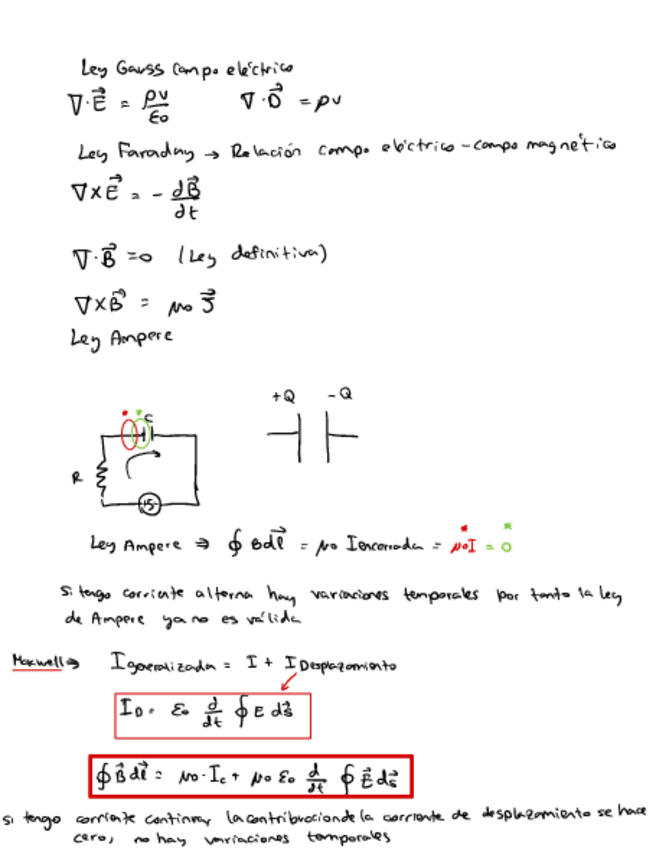 Ley Gauss campo eléctrico
∇·E⃗ = ρv/ε0    ∇·D⃗ = ρv
Ley Faraday → Relación campo eléctrico - campo magnético
∇×E⃗ = - dB⃗/dt
∇·B⃗ = 0 (Ley definitiva)
∇×B⃗ = μ0 J⃗
Ley Ampere
+Q -Q
* * C
R
Ley Ampere ⇒ ∮ B dl⃗ = μ0 Iencerrada = μ0I = 0
* *
Si tengo corriente alterna hay variaciones temporales por tanto la ley
de Ampere ya no es válida
Maxwell → I generalizada = I + I Desplazamiento
ID = ε0 d/dt ∮ E ds⃗
∮ B⃗ dl⃗ = μ0·Ic + μ0 ε0 d/dt ∮ E⃗ ds⃗
si tengo corriente continua, la contribucion de la corriente de desplazamiento se hace
cero, no hay variaciones temporales